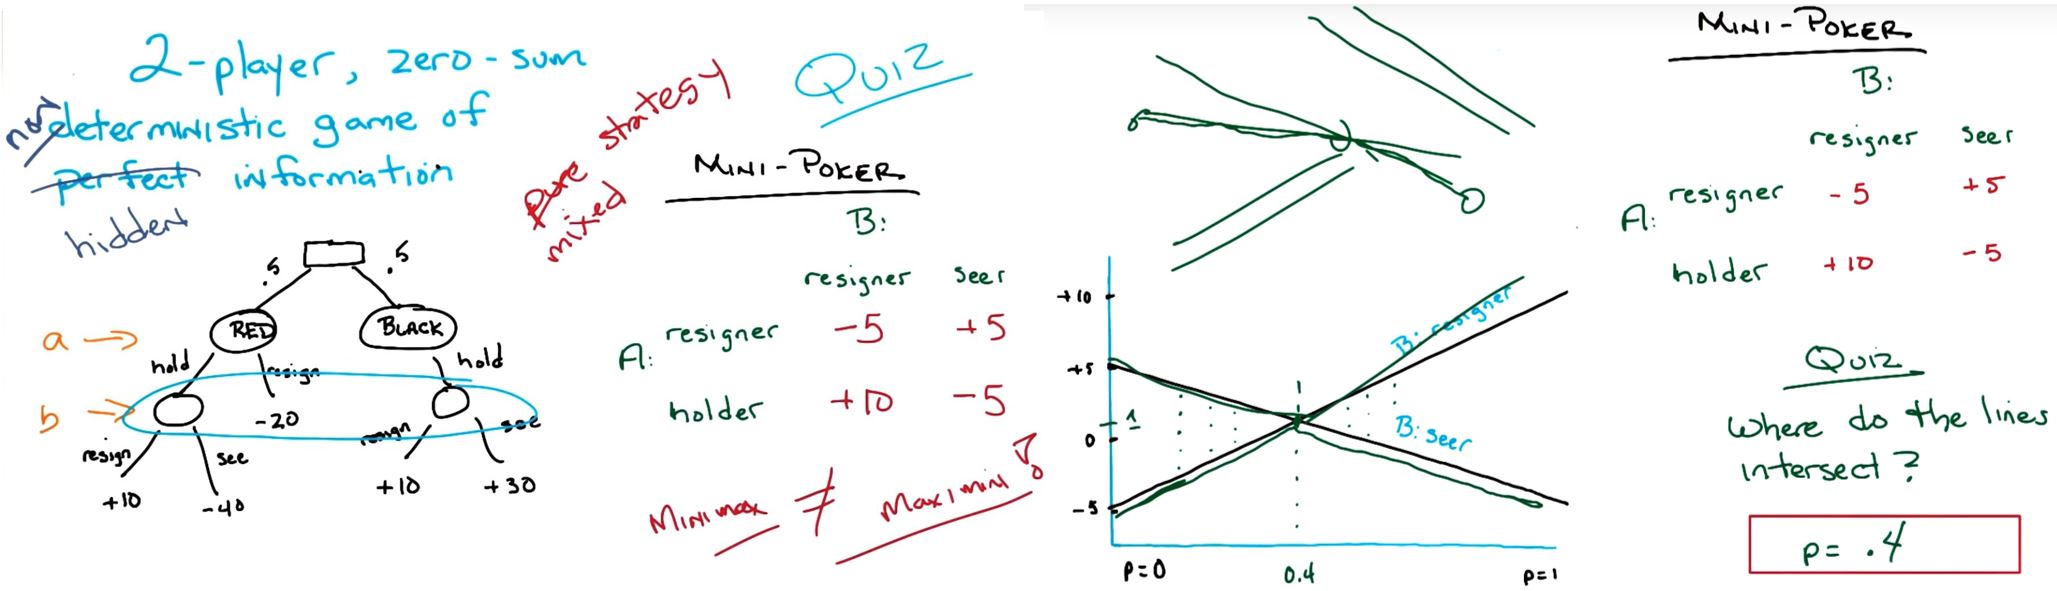 2-player, zero-sum
not
deterministic game of
perfect information
hidden
.5
.5
RED
BLACK
a →
hold
resign
hold
b ⇒
-20
resign
see
resign
see
+10
-40
+10
+30
pure strategy
mixed
Quiz
MINI-POKER
B:
resigner seer
A:
resigner -5 +5
holder +10 -5
Minimax ≠ Maximin!
+10
+5
1
0
-5
B: resigner
B: seer
p=0
0.4
p=1
MINI-POKER
B:
resigner seer
A:
resigner -5 +5
holder +10 -5
Quiz
Where do the lines
intersect?
p= .4